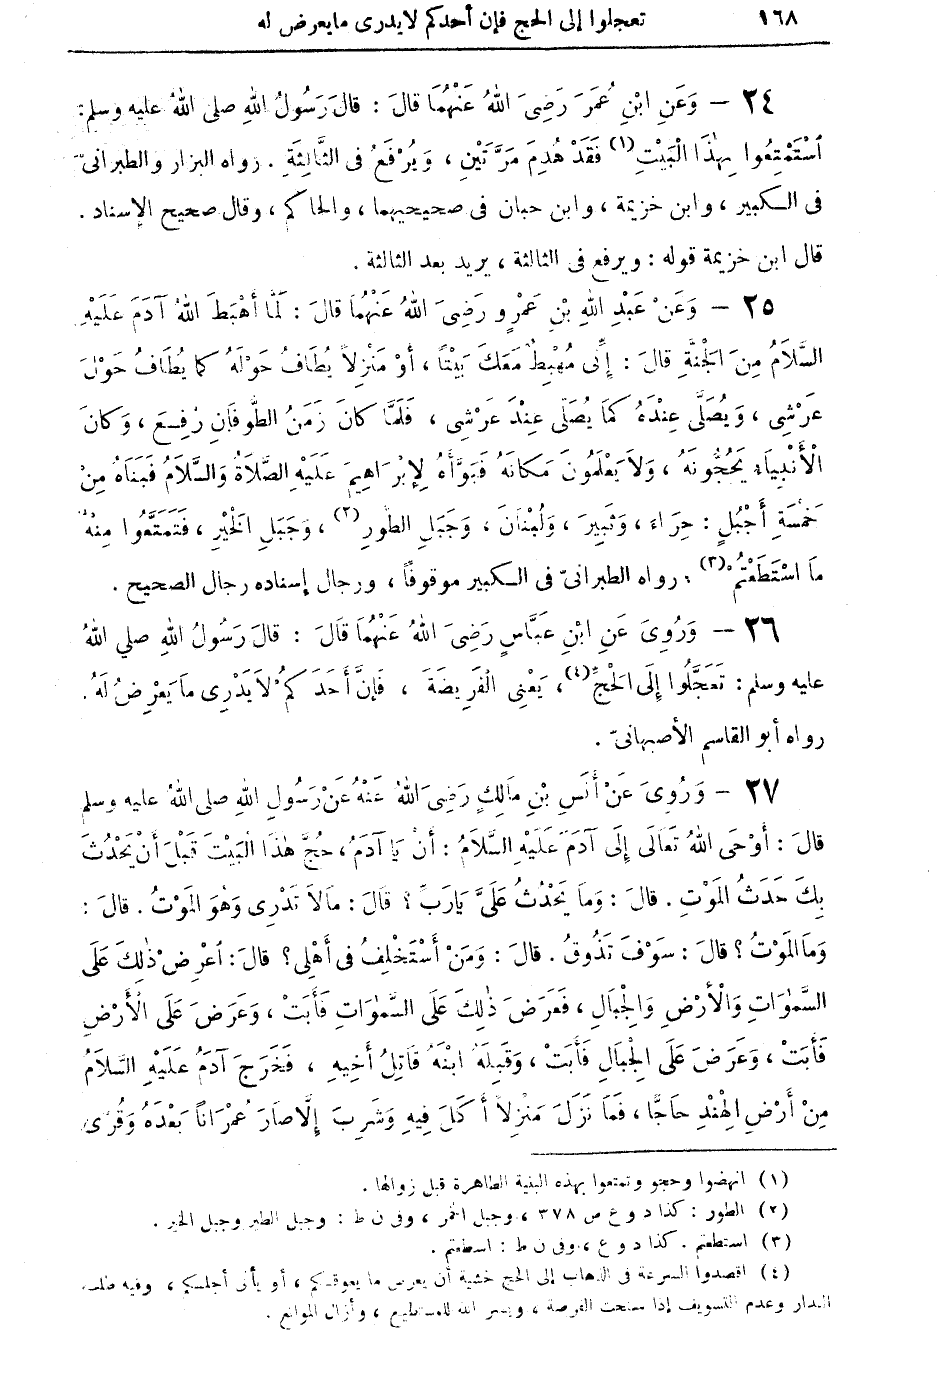 ١٦٨ تعجلوا إلى الحج فإن أحدكم لا يدرى ما يعرض له
٢٤ – وَعَنِ ابْنِ عُمَرَ رَضِىَ اللهُ عَنْهُمَا قالَ : قالَ رَسُولُ اللهِ صلى اللهُ عليه وسلم:
ٱسْتَمْتِعُوا بِهٰذَا الْبَيْتِ(١) فَقَدْ هُدِمَ مَرَّتَيْنِ ، وَيُرْفَعُ فى الثَّالِثَةِ . رواه البزار والطبرانىّ
فى الكبير ، وابن خزيمة ، وابن حبان فى صحيحيهما ، والحاكم ، وقال صحيح الإسناد .
قال ابن خزيمة قوله : ويرفع فى الثالثة ، يريد بعد الثالثة .
٢٥ – وَعَنْ عَبْدِ اللهِ بْنِ عَمْرٍو رَضِىَ اللهُ عَنْهُمَا قالَ : لَمَّا أَهْبَطَ اللهُ آدَمَ عَلَيْهِ
السَّلاَمُ مِنَ الْجَنَّةِ قالَ : إِنِّى مُهْبِطٌ مَعَكَ بَيْتًا ، أَوْ مَنْزِلاً يُطَافُ حَوْلَهُ كما يُطَافُ حَوْلَ
عَرْشِى ، وَيُصَلَّى عِنْدَهُ كَمَا يُصَلَّى عِنْدَ عَرْشِى ، فَلَمَّا كانَ زَمَنُ الطُّوفَانِ رُفِعَ ، وَكانَ
الْأَنْبِيَاء يَحُجُّونَهُ ، وَلاَ يَعْلَمُونَ مَكانَهُ فَبَوَّأَهُ لِإِبْرَاهِيمَ عَلَيْهِ الصَّلاَةُ وَالسَّلاَمُ فَبَنَاهُ مِنْ
خَمْسَةِ أَجْبُلٍ : حِرَاءَ ، وَثَبِيرَ ، وَلُبْنَانَ ، وَجَبَلِ الطُّورِ(٢) ، وَجَبَلِ الْخَيْرِ ، فَتَمَتَّعُوا مِنْهُ
مَا اسْتَطَعْتُمْ(٣) . رواه الطبرانىّ فى الكبير موقوفاً ، ورجال إسناده رجال الصحيح .
٢٦ – وَرُوِىَ عَنِ ابْنِ عَبَّاسٍ رَضِىَ اللهُ عَنْهُمَا قالَ : قالَ رَسُولُ اللهِ صلي اللهُ
عليه وسلم : تَعَجَّلُوا إِلَى الْحَجِّ(٤) ، يَعْنِى الْفَرِيضَةَ ، فَإِنَّ أَحَدَكُمْ لاَ يَدْرِى مَا يَعْرِضُ لَهُ .
رواه أبو القاسم الأصبهانىّ .
٢٧ – وَرُوِىَ عَنْ أَنَسِ بْنِ مالِكٍ رَضِىَ اللهُ عَنْهُ عَنْ رَسُولِ اللهِ صلى اللهُ عليه وسلم
قالَ : أَوْحَى اللهُ تَعَالَى إِلَى آدَمَ عَلَيْهِ السَّلاَمُ : أَنْ يَا آدَمُ ، حُجَّ هٰذَا الْبَيْتَ قَبْلَ أَنْ يَحْدُثَ
بِكَ حَدَثُ الْمَوْتِ . قالَ : وَمَا يَحْدُثُ عَلَىَّ يَارَبِّ ؟ قالَ : مالاَ تَدْرِى وَهُوَ الْمَوْتُ . قالَ :
وَمَا الْمَوْتُ ؟ قالَ : سَوْفَ تَذُوقُ . قالَ : وَمَنْ أَسْتَخْلِفُ فى أَهْلِى ؟ قالَ : اعْرِضْ ذٰلِكَ عَلَى
السَّمٰوَاتِ وَالْأَرْضِ وَالْجِبَالِ ، فَعَرَضَ ذٰلِكَ عَلَى السَّمٰوَاتِ فَأَبَتْ ، وَعَرَضَ عَلَى الْأَرْضِ
فَأَبَتْ ، وَعَرَضَ عَلَى الْجِبَالِ فَأَبَتْ ، وَقَبِلَهُ ابْنُهُ قَاتِلُ أَخِيهِ ، فَخَرَجَ آدَمُ عَلَيْهِ السَّلاَمُ
مِنْ أَرْضِ الْهِنْدِ حَاجًّا ، فَمَا نَزَلَ مَنْزِلاً أَكَلَ فِيهِ وَشَرِبَ إِلَّا صَارَ عُمْرَاناً بَعْدَهُ وَقُرًى
(١) انهضوا وحجو وتمتعوا بهذه البنية الطاهرة قبل زوالها .
(٢) الطور : كذا د و ع ص ٣٧٨ ، وجبل الخمر ، وفى ن ط : وجبل الطير وجبل الخير .
(٣) استطعتم . كذا د و ع ، وفى ن ط : اسطعتم .
(٤) اقصدوا السرعة فى الذهاب إلى الحج خشية أن يعرض ما يعوقكم ، أو يأتى أجلكم ، وفيه طلب
البدار وعدم التسويف إذا سنحت الفرصة ، ويسر الله للمستطيع ، وأزال الموانع .